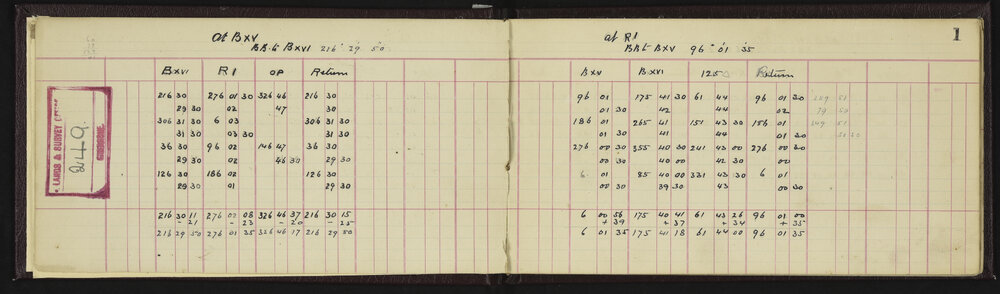 At B XV
B.B. to B XVI 216° 29' 50"
B XVI R I OP Return
216 30 276 01 30 326 46 216 30
29 30 02 47 30
306 31 30 6 03 306 31 30
31 30 03 30 31 30
36 30 96 02 146 47 36 30
29 30 02 46 30 29 30
126 30 186 02 126 30
29 30 01 29 30
216 30 11 276 02 08 326 46 37 216 30 15
- 21 - 23 - 20 - 25
216 29 50 276 01 35 326 46 17 216 29 50
LANDS & SURVEY
249
GISBORNE
1
at R I
B.B. to B XV 96° 01' 35"
B XV B XVI 125 Return
96 01 175 41 30 61 44 96 01 30 259 51
01 30 42 44 02 79 50
186 01 265 41 151 43 30 156 01 249 51
01 30 41 44 01 30 50 30
276 00 30 355 40 30 241 43 00 276 00 30
00 30 40 00 42 30 00
6 01 85 40 00 331 43 30 6 01
00 30 39 30 43 00 30
6 00 56 175 40 41 61 43 26 96 01 00
+ 39 + 37 + 34 + 35
6 01 35 175 41 18 61 44 00 96 01 35